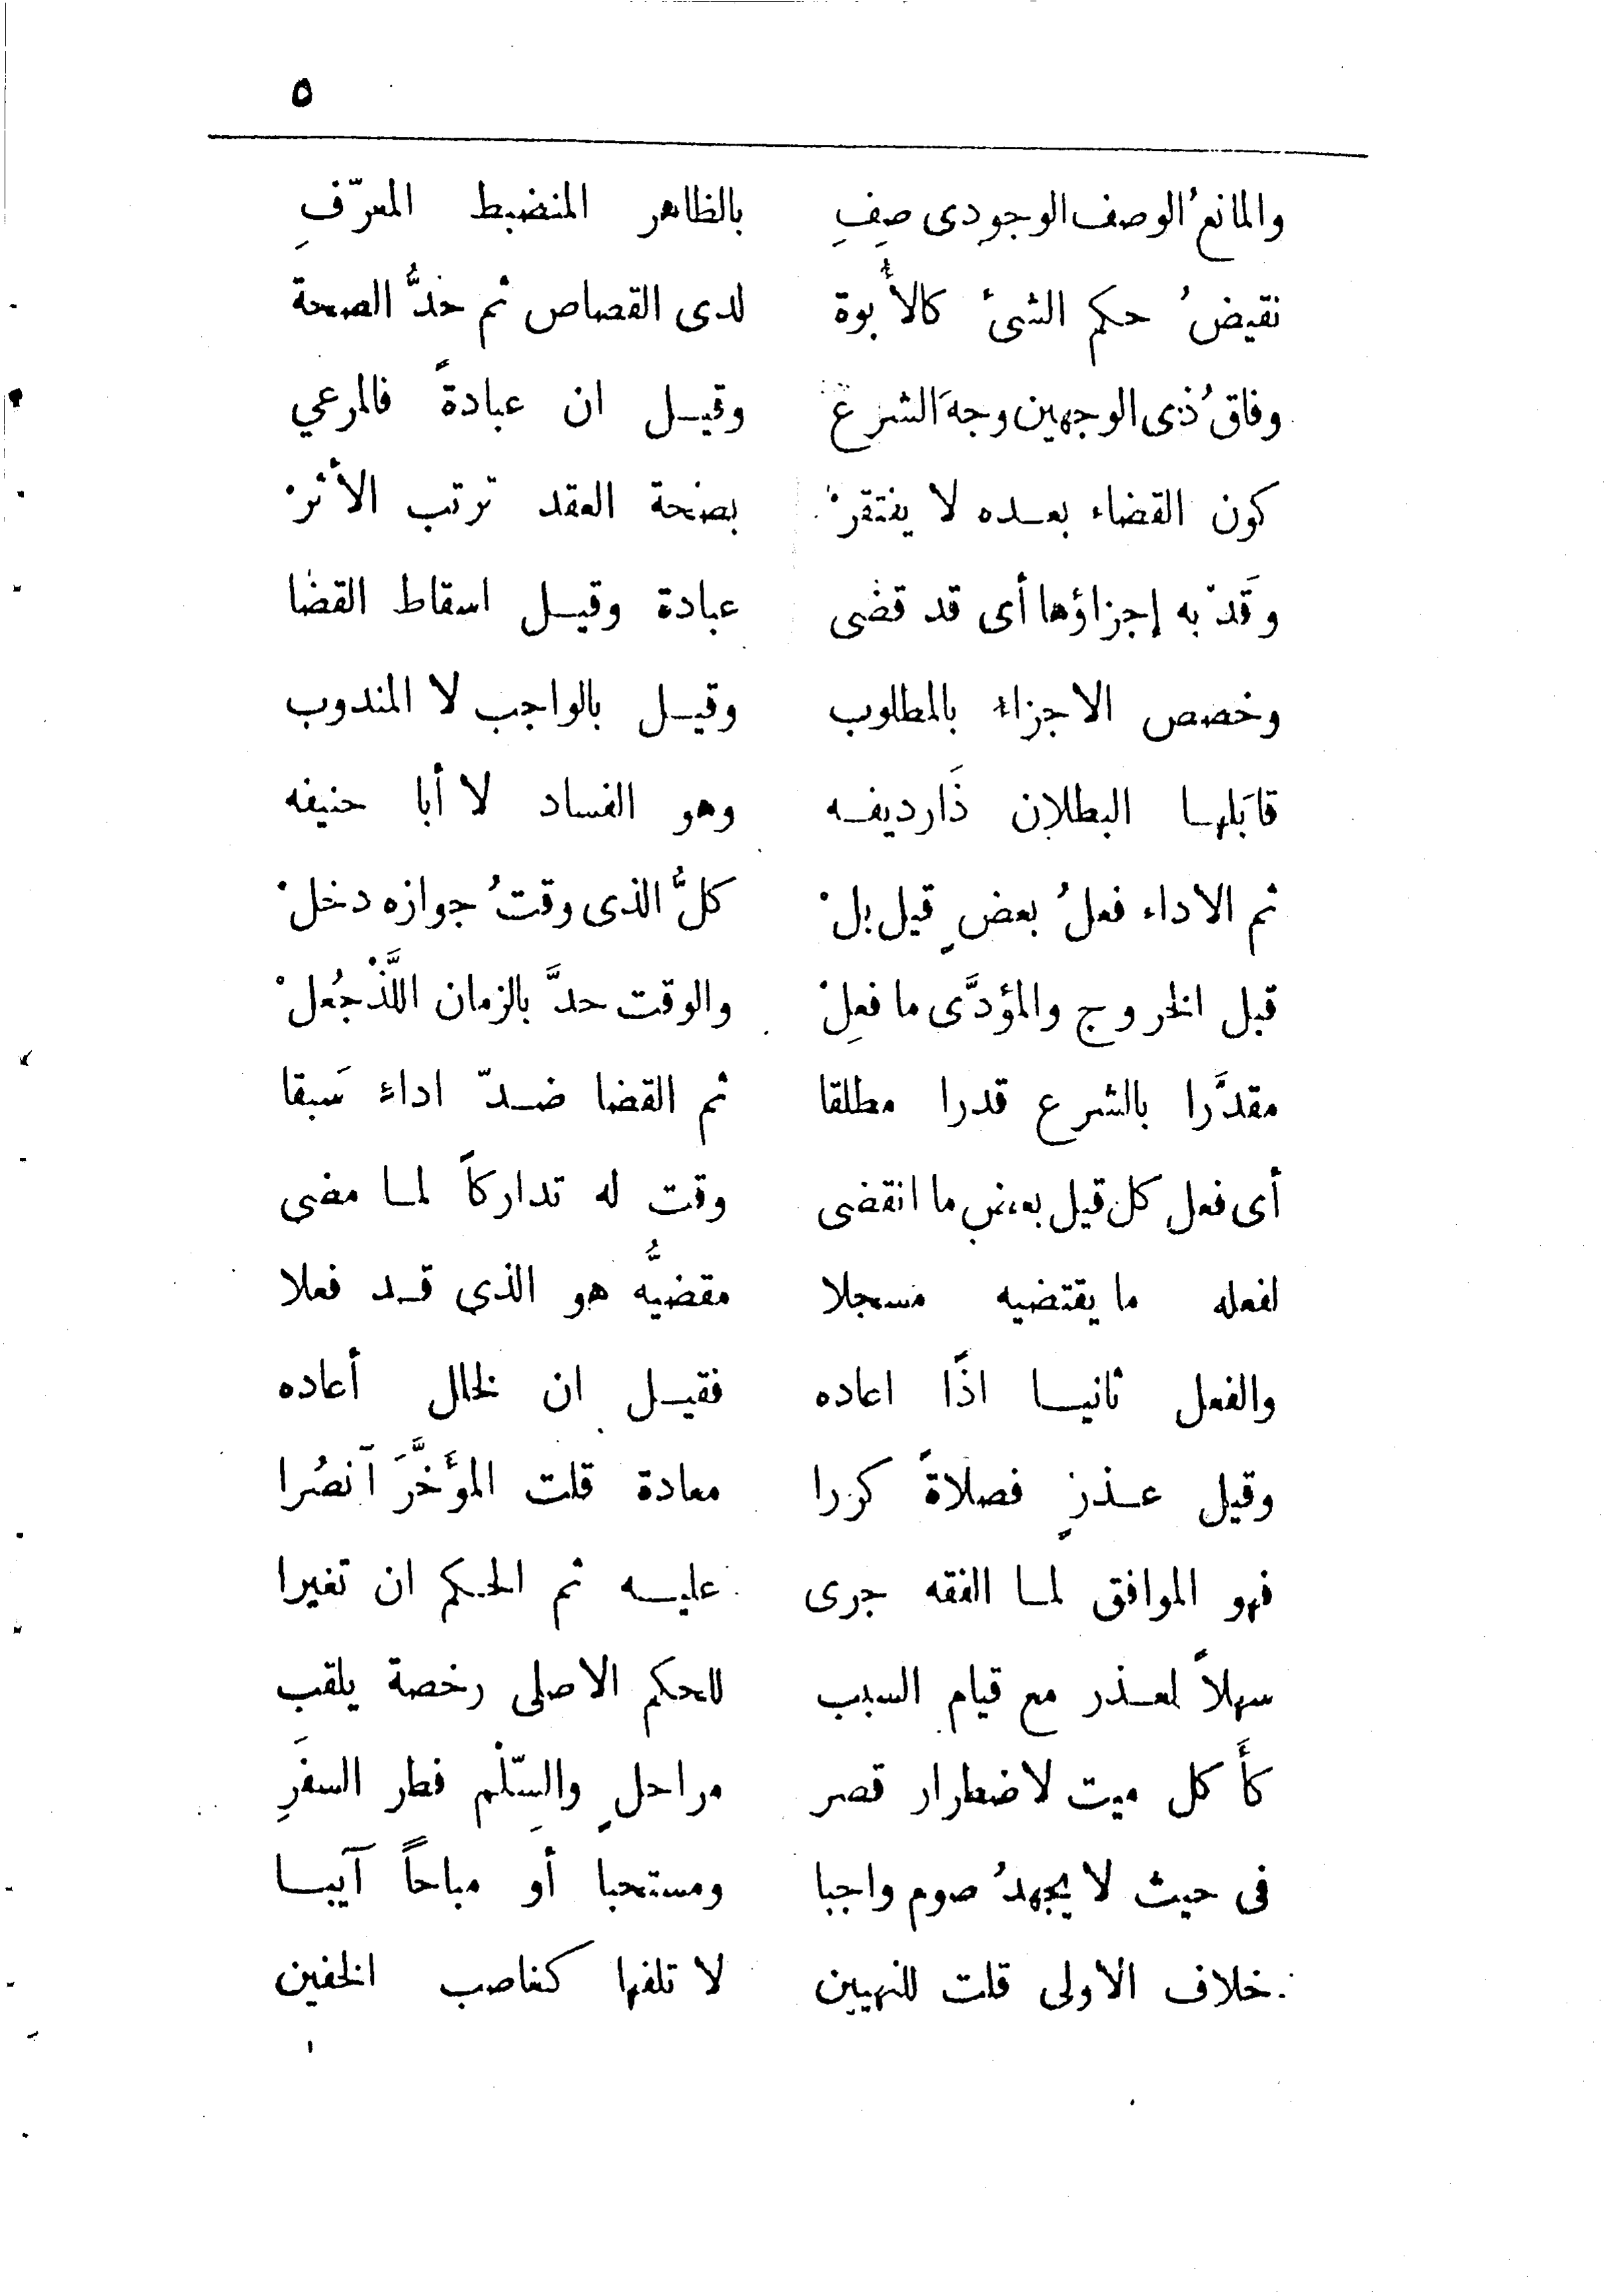 ٥
والمانعُ الوصف الوجودى صِفِ بالظاهر المنضبط المعرّفِ
نقيضُ حكم الشئ كالأُبوة لدى القصاص ثم حدُّ الصحة
وفاقُ ذى الوجهين وجهَ الشرع وقيل ان عبادةً فالمرعي
كون القضاء بعده لا يفتقرْ بصحة العقد ترتب الأثرْ
وقَدْ به إجزاؤها أى قد قضى عبادة وقيل اسقاط القضا
وخصص الاجزاء بالمطلوب وقيل بالواجب لا المندوب
قابَلها البطلان ذَا رديفه وهو الفساد لا أبا حنيفه
ثم الاداء فعلُ بعضٍ قيل بلْ كلُّ الذى وقتُ جوازه دخلْ
قبل الخروج والمؤدَّى ما فعِلْ والوقت حدَّ بالزمان اللَّذْ جُعلْ
مقدَّرا بالشرع قدرا مطلقا ثم القضا ضدّ اداء سَبقا
أى فعل كل قيل بعض ما انقضى وقت له تداركاً لما مضى
لفعله ما يقتضيه مسجلا مقضيُّه هو الذى قد فعلا
والفعل ثانيا اذًا اعاده فقيل ان لخلل أعاده
وقيل عذرٍ فصلاةً كررا معادة قلت المؤَخَّرَ آنصُرا
فهو الموافق لما الفقه جرى عليه ثم الحكم ان تغيرا
سهلاً لعذر مع قيام السبب للحكم الاصلى رخصة يلقب
كأَكل ميت لاضطرار قصر مراحلٍ والسّلْم فطر السفَرِ
فى حيث لا يجهدُ صوم واجبا ومستحبا أو مباحاً آيبا
خلاف الاولى قلت للنهيين لا تلفها كغاصب الخفين